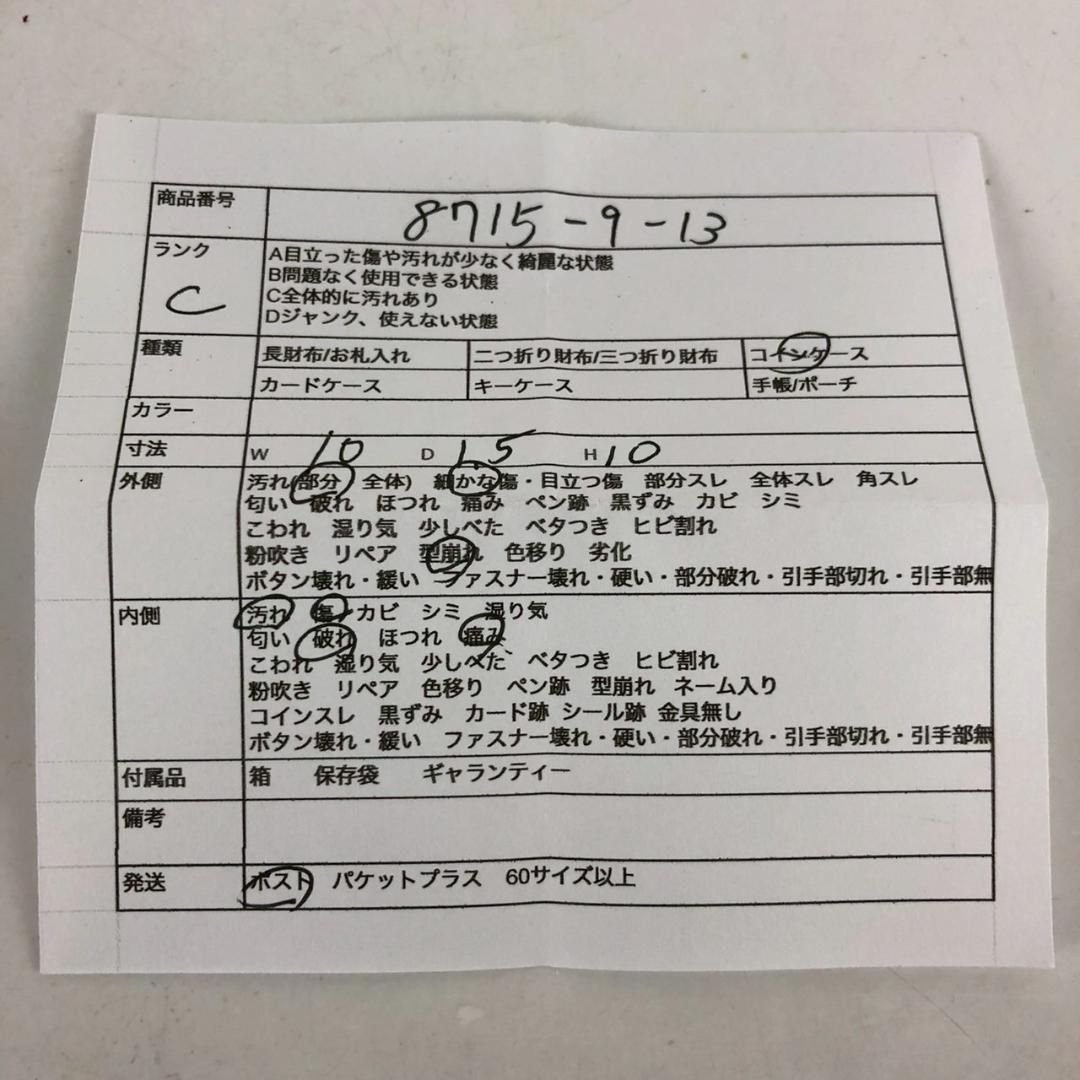 商品番号 8715-9-13
ランク A目立った傷や汚れが少なく綺麗な状態
B問題なく使用できる状態
C C全体的に汚れあり
Dジャンク、使えない状態
種類 長財布/お札入れ 二つ折り財布/三つ折り財布 コインケース
カードケース キーケース 手帳/ポーチ
カラー
寸法 W 10 D 1.5 H 10
外側 汚れ(部分 全体) 細かな傷・目立つ傷 部分スレ 全体スレ 角スレ
匂い 破れ ほつれ 痛み ペン跡 黒ずみ カビ シミ
こわれ 湿り気 少しべた ベタつき ヒビ割れ
粉吹き リペア 型崩れ 色移り 劣化
ボタン壊れ・緩い ファスナー壊れ・硬い・部分破れ・引手部切れ・引手部無
内側 汚れ 傷 カビ シミ 湿り気
匂い 破れ ほつれ 痛み
こわれ 湿り気 少しべた ベタつき ヒビ割れ
粉吹き リペア 色移り ペン跡 型崩れ ネーム入り
コインスレ 黒ずみ カード跡 シール跡 金具無し
ボタン壊れ・緩い ファスナー壊れ・硬い・部分破れ・引手部切れ・引手部無
付属品 箱 保存袋 ギャランティー
備考
発送 ポスト パケットプラス 60サイズ以上